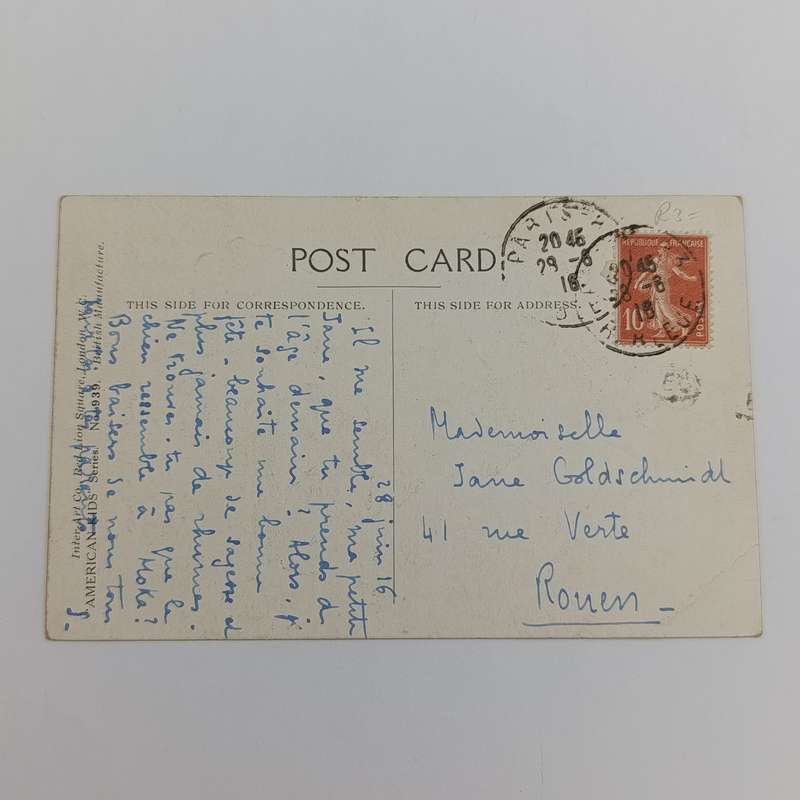 R3=
POST CARD
THIS SIDE FOR CORRESPONDENCE.
THIS SIDE FOR ADDRESS.
Inter-Art Co., Red Lion Square, London, W.C.
"AMERICAN KIDS" Series. No. 939. British Manufacture.
28 juin 16
Il me semble, ma petite
Jane, que tu prends de
l'âge demain? Alors, j
te souhaite une bonne
fête - beaucoup de sagesse et
plus jamais de rhumes.
Ne trouves-tu pas que le
chien ressemble à Moka?
Bons baisers de nous tous
Mademoiselle
Jane Goldschmidt
41 rue Verte
Rouen
REPUBLIQUE FRANÇAISE
10
POSTES
PARIS
20 45
28 - 6
16
20 45
28 - 6
16